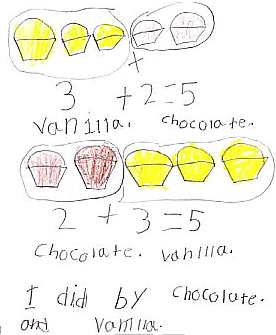 +
3 + 2 = 5
Vanilla. chocolate.
2 + 3 = 5
Chocolate. Vanilla.
I did by chocolate.
and Vanilla.